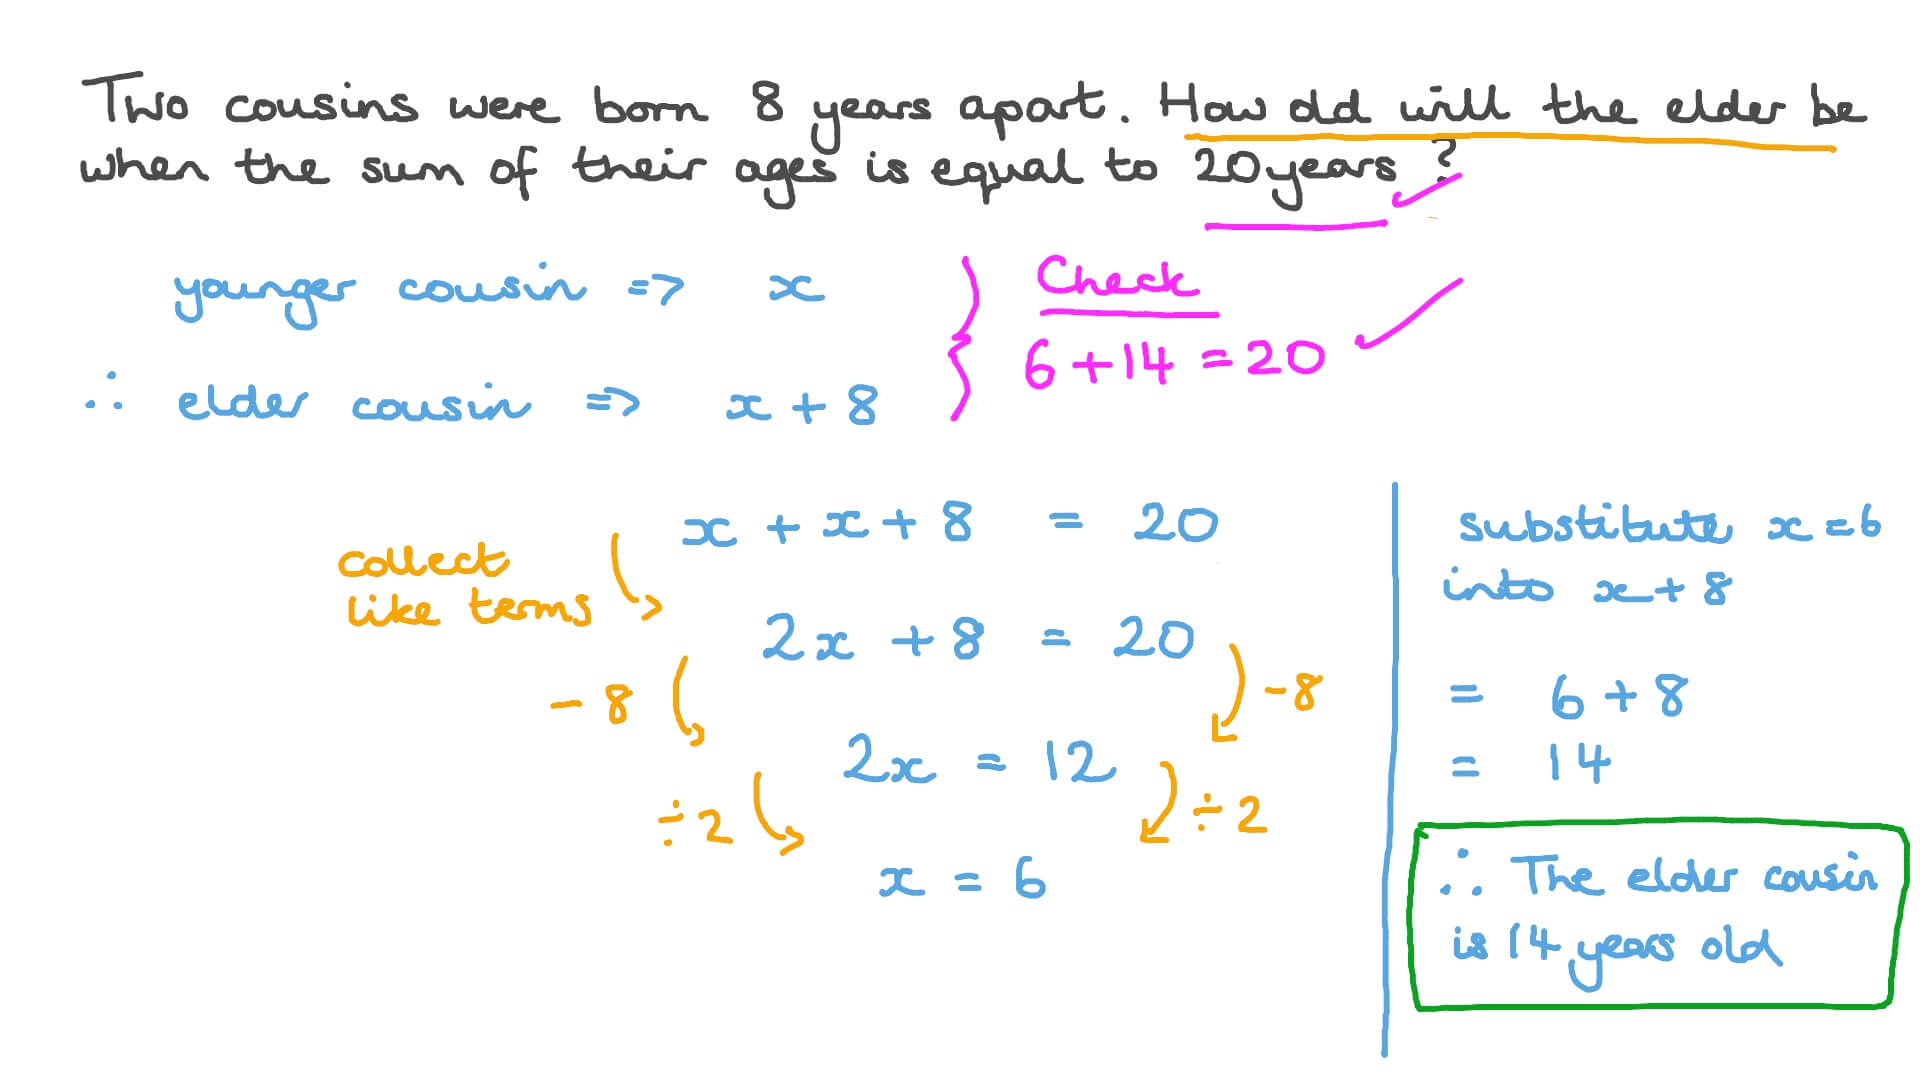 Two cousins were born 8 years apart. How old will the elder be
when the sum of their ages is equal to 20 years?
younger cousin => x
∴ elder cousin => x + 8
Check
6 + 14 = 20
x + x + 8 = 20
collect
like terms
2x + 8 = 20
- 8
- 8
2x = 12
÷ 2
÷ 2
x = 6
substitute x = 6
into x + 8
= 6 + 8
= 14
∴ The elder cousin
is 14 years old